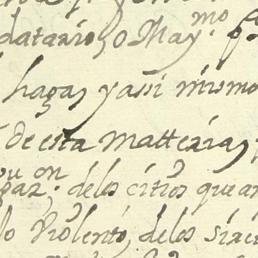 datario, o May.mo
hagas y assi mismo
de esta matteria,
de los citios que an
lo Violento, de los